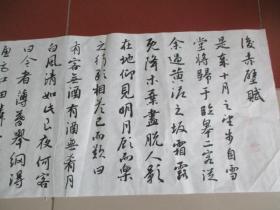 後赤壁賦
是歲十月之望步自雪
堂將歸于臨皋二客從
余過黃泥之坂霜露
既降木葉盡脫人影
在地仰見明月顧而樂
之行歌相答已而歎曰
有客無酒有酒無肴月
白風清如此良夜何客
曰今者薄暮舉網得